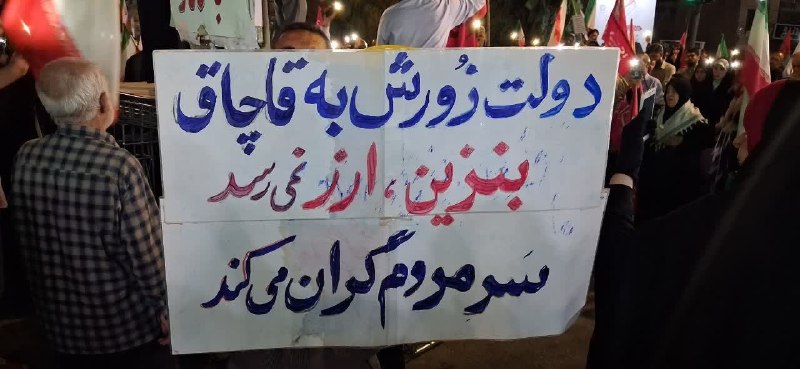 دولت زُورش به قاچاق
بنزین، ارز نمی‌رسد
سَرِ مردم گران می‌کند